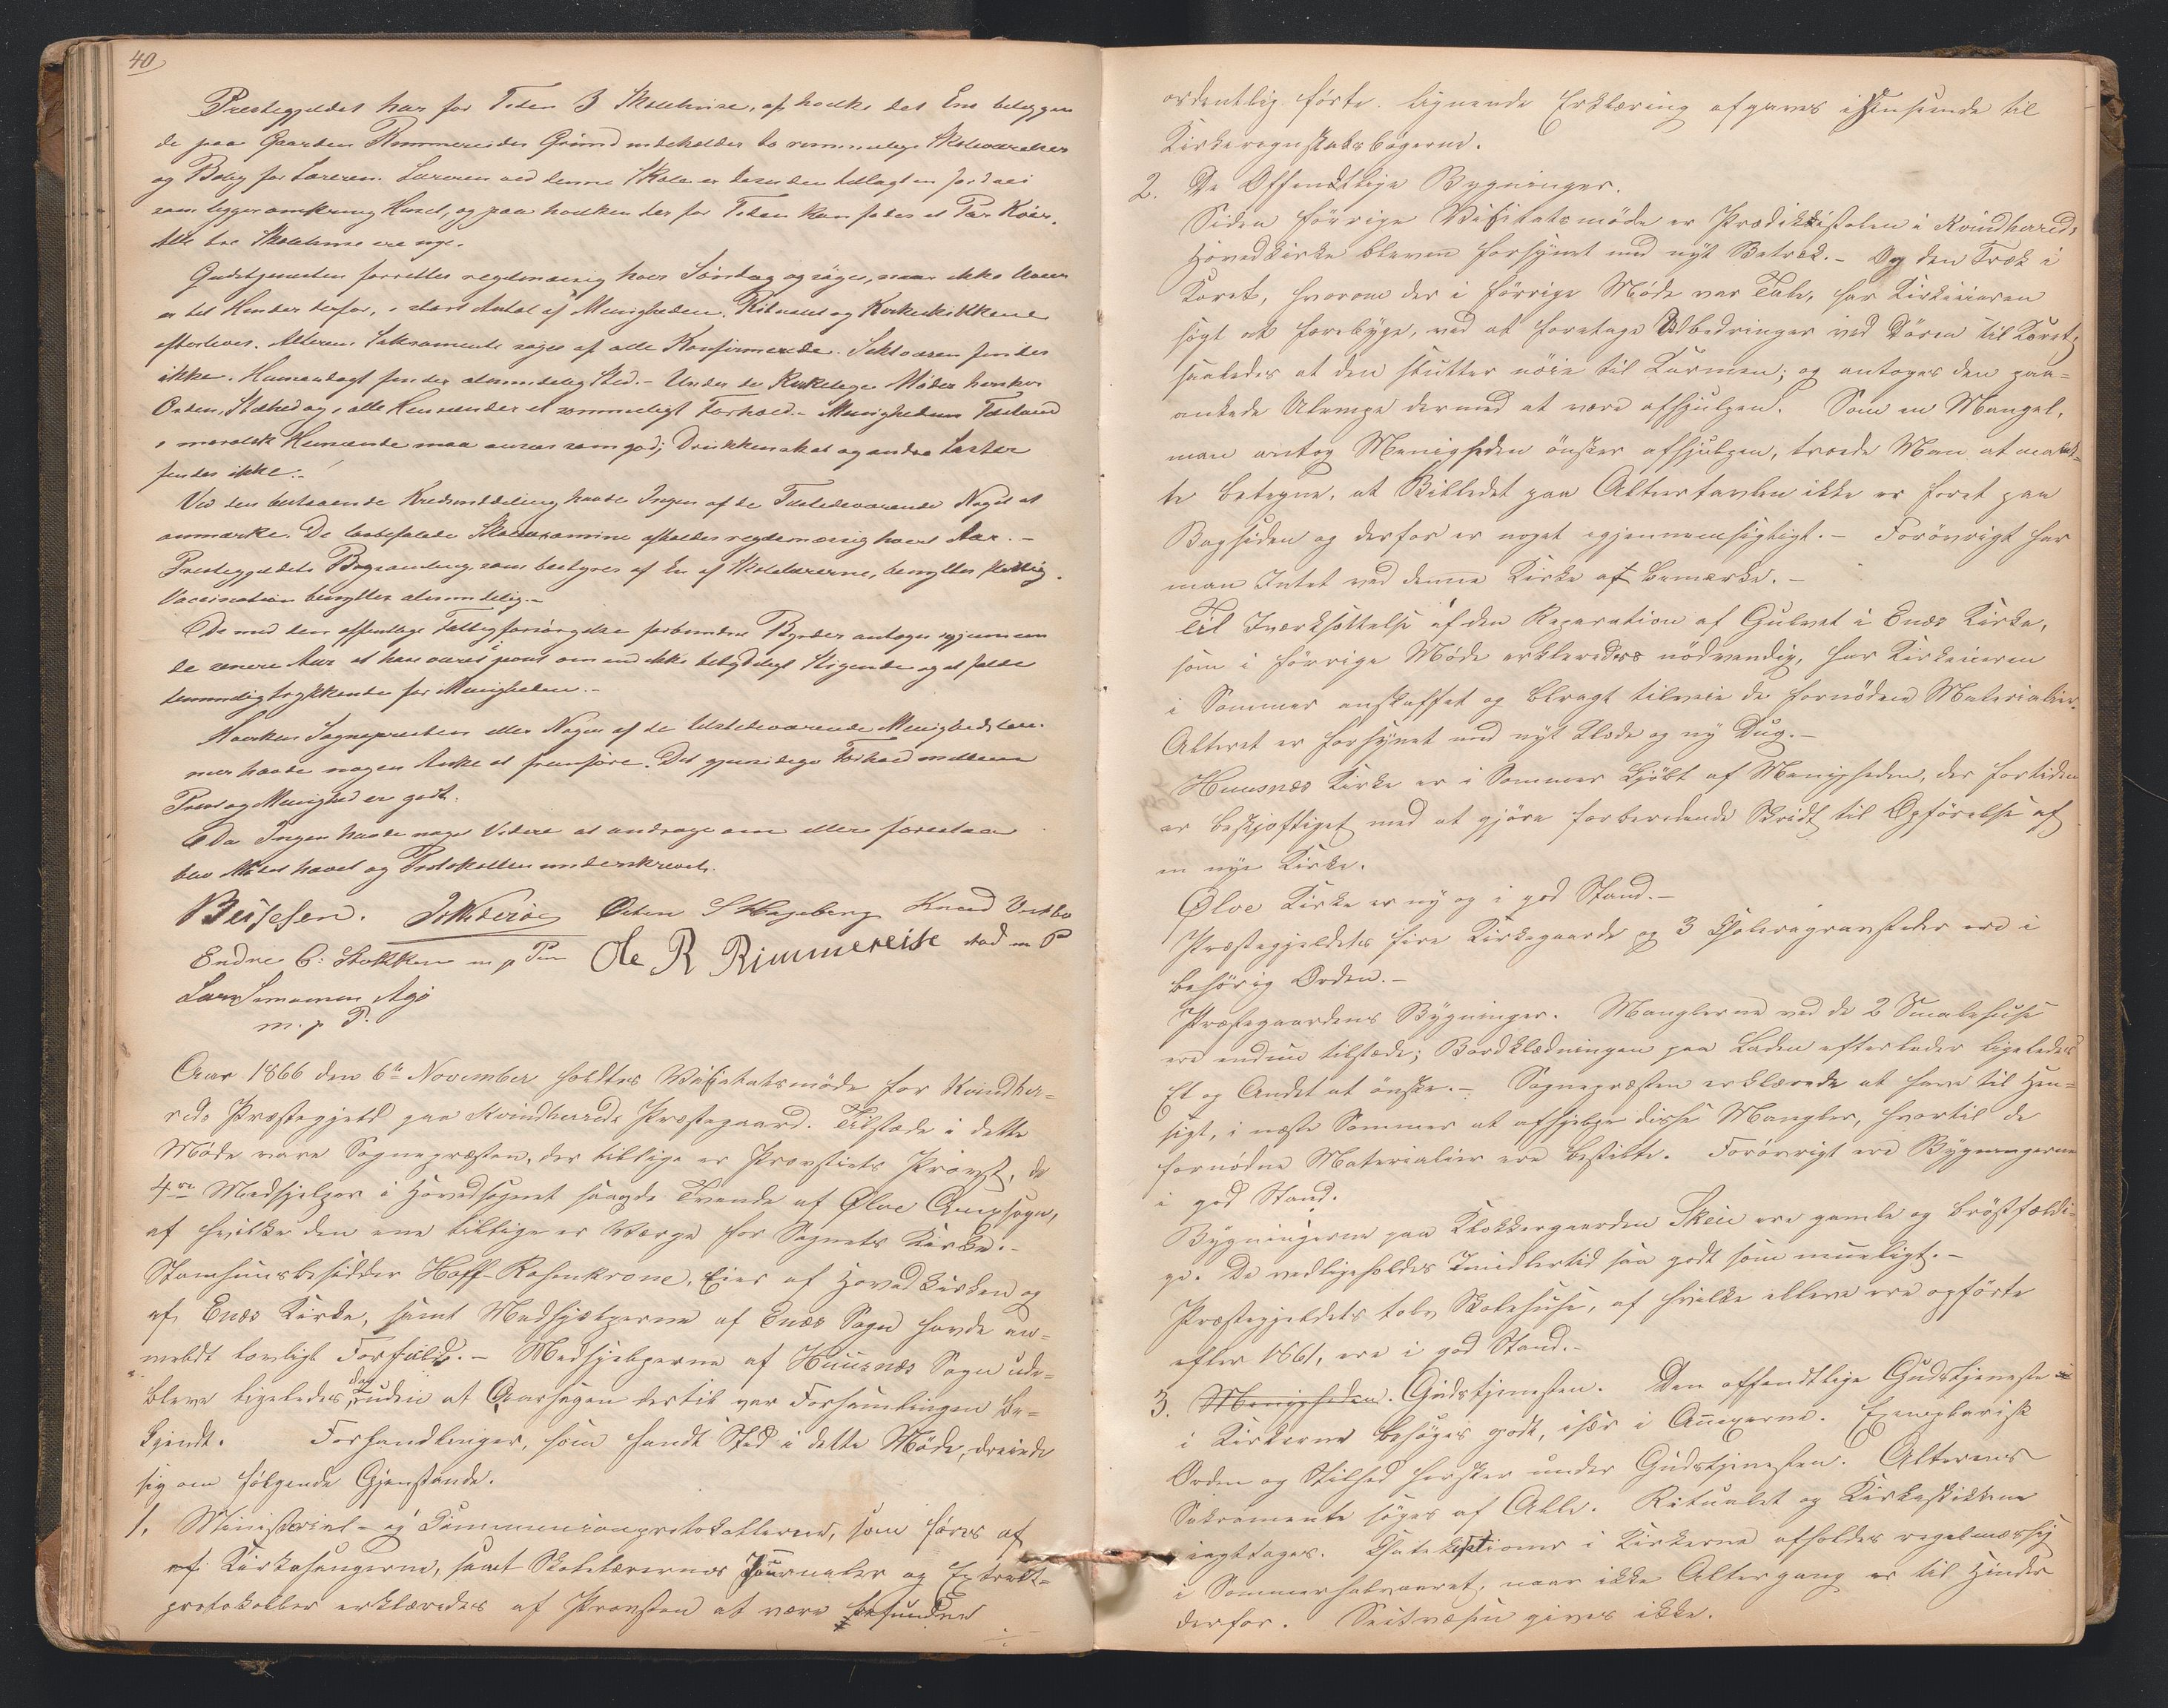 40
Præstegjeldet har for Tiden 3 Skolehuse, af hvilke det Ene beliggen
de paa Gaarden Rimmereides Grund indeholder to rummelige Skoleværelser
og Bolig for Læreren. Læreren ved denne Skole er desuden tillagt en Jordvei
som ligger omkring Huset, og paa hvilken der for Tiden kan fødes et Par Køer.
Alle tre Skolehuse ere nye.
Gudstjenesten forrettes regelmæssig hver Søndag og søges, naar ikke Veiret
er til Hinder derfor, i stort Antal af Menigheden. Ritualet og Kirkeskikkene
efterleves. Alterens Sakramente søges af alle Konfirmerede. Sektvæsen findes
ikke. Huusandagt finder almindelig Sted. – Under de Kirkelige Møder hersker
Orden, Stilhed og i alle Henseender et sømmeligt Forhold. – Menighedens Tilstand
i moralsk Henseende maa ansees som god; Drukkenskab og andre Laster
findes ikke. –
Ved den bestaaende Kredsinddeling havde Ingen af de Tilstedeværende Noget at
anmærke. De lovbefalede Skoleexamina afholdes regelmæssig hvert Aar. –
Præstegjeldets Bogsamling, som bestyres af En af Skolelærerne, benyttes flittig.
Vaccination benyttes almindelig. –
De med den offentlige Fattigforsørgelse forbundne Byrder antages igjennem
de senere Aar at have været jevnt om end ikke betydeligt Stigende og at falde
temmelig trykkende for Menigheden. –
Hverken Sognepræsten eller Nogen af de tilstedeværende Menighedslem-
mer havde nogen Anke at fremføre. Det gjensidige Forhold mellem
Præst og Menighed er godt.
Da Ingen havde noget Videre at andrage om eller foreslaae
blev Mødet hævet og Protokollen underskrevet.
Østen S Hageberg Knud
Endre C. Stokken m. p. Pen Ole R Rimmereise med m P
Lars Simonsen Agø
m. p. P.
Aar 1866 den 6te November holdtes Visitatsmøde for Kvindher-
reds Præstegjeld paa Kvindherreds Præstegaard. Tilstæde i dette
Møde vare Sognepræsten, der tillige er Provstiets Provst, de
4re Medhjelpere i Hovedsognet samt Tvende af Ølve Annexsogn,
af hvilke den ene tillige er Værge for Sognets Kirke. –
Stamhuusbesidder Hoff-Rosenkrone, Eier af Hovedkirken og
af Enæs Kirke, samt Medhjelperne af Enæs Sogn havde an-
meldt lovligt Forfald. – Medhjelperne af Huusnæs Sogn ude-
bleve ligeledes, uden at Aarsagen dertil var Forsamlingen be-
kjendt. Forhandlinger, som fandt Sted i dette Møde, dreiede
sig om følgende Gjenstande.
1. Ministerial- og Communionprotokollerne, som føres af
af Kirkesangerne, samt Skolelærernes Journaler og Extrakt-
protokoller erklæredes af Provsten at være befundne
ordentlig førte. Lignende Erklæring afgaves i Henseende til
Kirkeregnskabsbøgerne.
2. De Offentlige Bygninger.
Siden forrige Visitatsmøde er Prædikestolen i Kvindherreds
Hovedkirke bleven forsynet med nyt Betræk. – Og den Træk i
Koret, hvorom der i forrige Møde var Tale, har Kirkeeieren
søgt at forebyge, ved at foretage Udbedringer ved Døren til Koret,
saaledes at den slutter nøie til Karmen; og antoges den paa-
ankede Ulempe dermed at være afhjulpen. Som en Mangel,
man antog Menigheden ønsker afhjulpen, troede Man at maat-
te betegne, at Billedet paa Altertavlen ikke er foret paa
Bagsiden og derfor er noget igjennemsigtigt. – Forøvrigt har
man Intet ved denne Kirke at bemærke. –
Til Iværksættelse af den Reparation af Gulvet i Enæs Kirke,
som i forrige Møde erklæredes nødvendig, har Kirkeeieren
i Sommer anskaffet og bragt tilveie de fornødne Materialier.
Alteret er forsynet med nyt Klæde og ny Dug. –
Huusnæs Kirke er i Sommer kjøbt af Menigheden, der fortiden
er beskjæftiget med at gjøre forberedende Skridt til Opførelse af
en nye Kirke.
Ølve Kirke er ny og i god Stand. –
Præstegjeldets fire Kirkegaarde og 3 Choleragravsteder ere i
behørig Orden. –
Præstegaardens Bygninger. Manglerne ved de 2 Smalehuse
ere endnu tilstæde; Bordklædningen paa Laden efterlader ligeledes
Et og Andet at ønske. – Sognepræsten erklærede at have til Hen-
sigt, i næste Sommer at afhjelpe disse Mangler, hvortil de
fornødne Materialier ere bestilte. Forøvrigt ere Bygningerne
i god Stand.
Bygningerne paa Klokkergaarden Skeie ere gamle og brøstfældi-
ge. De vedligeholdes imidlertid saa godt som mueligt. –
Præstegjeldets tolv Skolehuse, af hvilke elleve ere opførte
efter 1861, ere i god Stand. –
3. Menigheden. Gudstjenesten. Den offentlige Gudstjeneste
i Kirkerne besøges godt, især i Annexerne. Exemplarisk
Orden og Stilhed hersker under Gudstjenesten. Alterens
Sakramente søges af Alle. Ritualet og Kirkeskikkene
iagttages. Katekisationer i Kirkerne afholdes regelmæssig
i Sommerhalvaaret, naar ikke Altergang er til Hinder
derfor. Sectvæsen gives ikke.